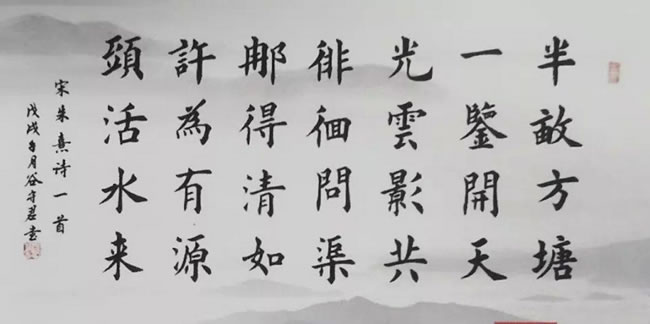 半畝方塘
一鑒開天
光雲影共
徘徊問渠
那得清如
許為有源
頭活水来
宋朱熹诗一首
戊戌月谷守君